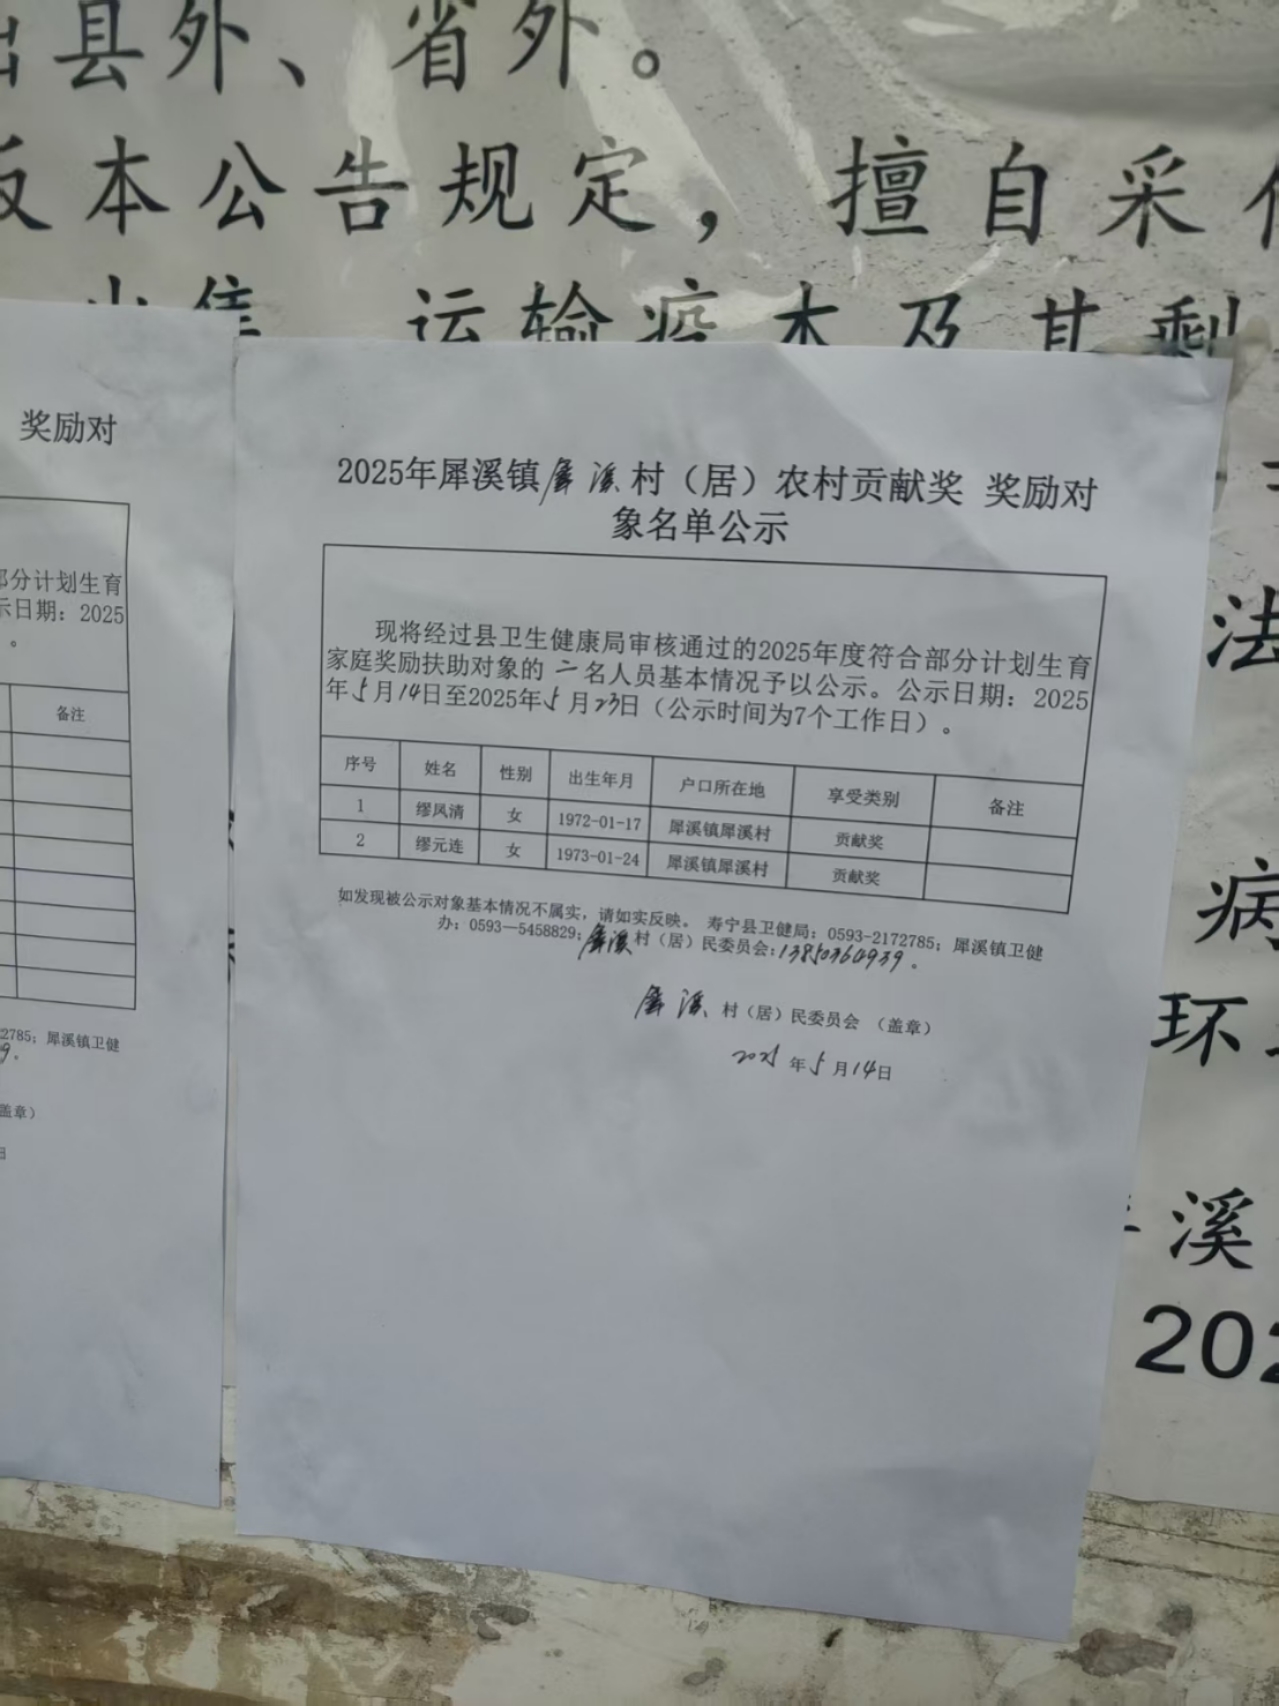 县外、省外。
本公告规定，擅自采
运输疫木及其剩
奖励对
部分计划生育
示日期：2025
。
备注
2785；犀溪镇卫健
9。
盖章）
日
2025年犀溪镇犀溪村（居）农村贡献奖 奖励对
象名单公示
现将经过县卫生健康局审核通过的2025年度符合部分计划生育
家庭奖励扶助对象的二名人员基本情况予以公示。公示日期：2025
年5月14日至2025年5月23日（公示时间为7个工作日）。
序号 姓名 性别 出生年月 户口所在地 享受类别 备注
1 缪凤清 女 1972-01-17 犀溪镇犀溪村 贡献奖
2 缪元连 女 1973-01-24 犀溪镇犀溪村 贡献奖
如发现被公示对象基本情况不属实，请如实反映。 寿宁县卫健局：0593-2172785；犀溪镇卫健
办：0593—5458829；犀溪村（居）民委员会：13850364939。
犀溪 村（居）民委员会 （盖章）
2025 年 5 月 14日
法
病
环
溪
202